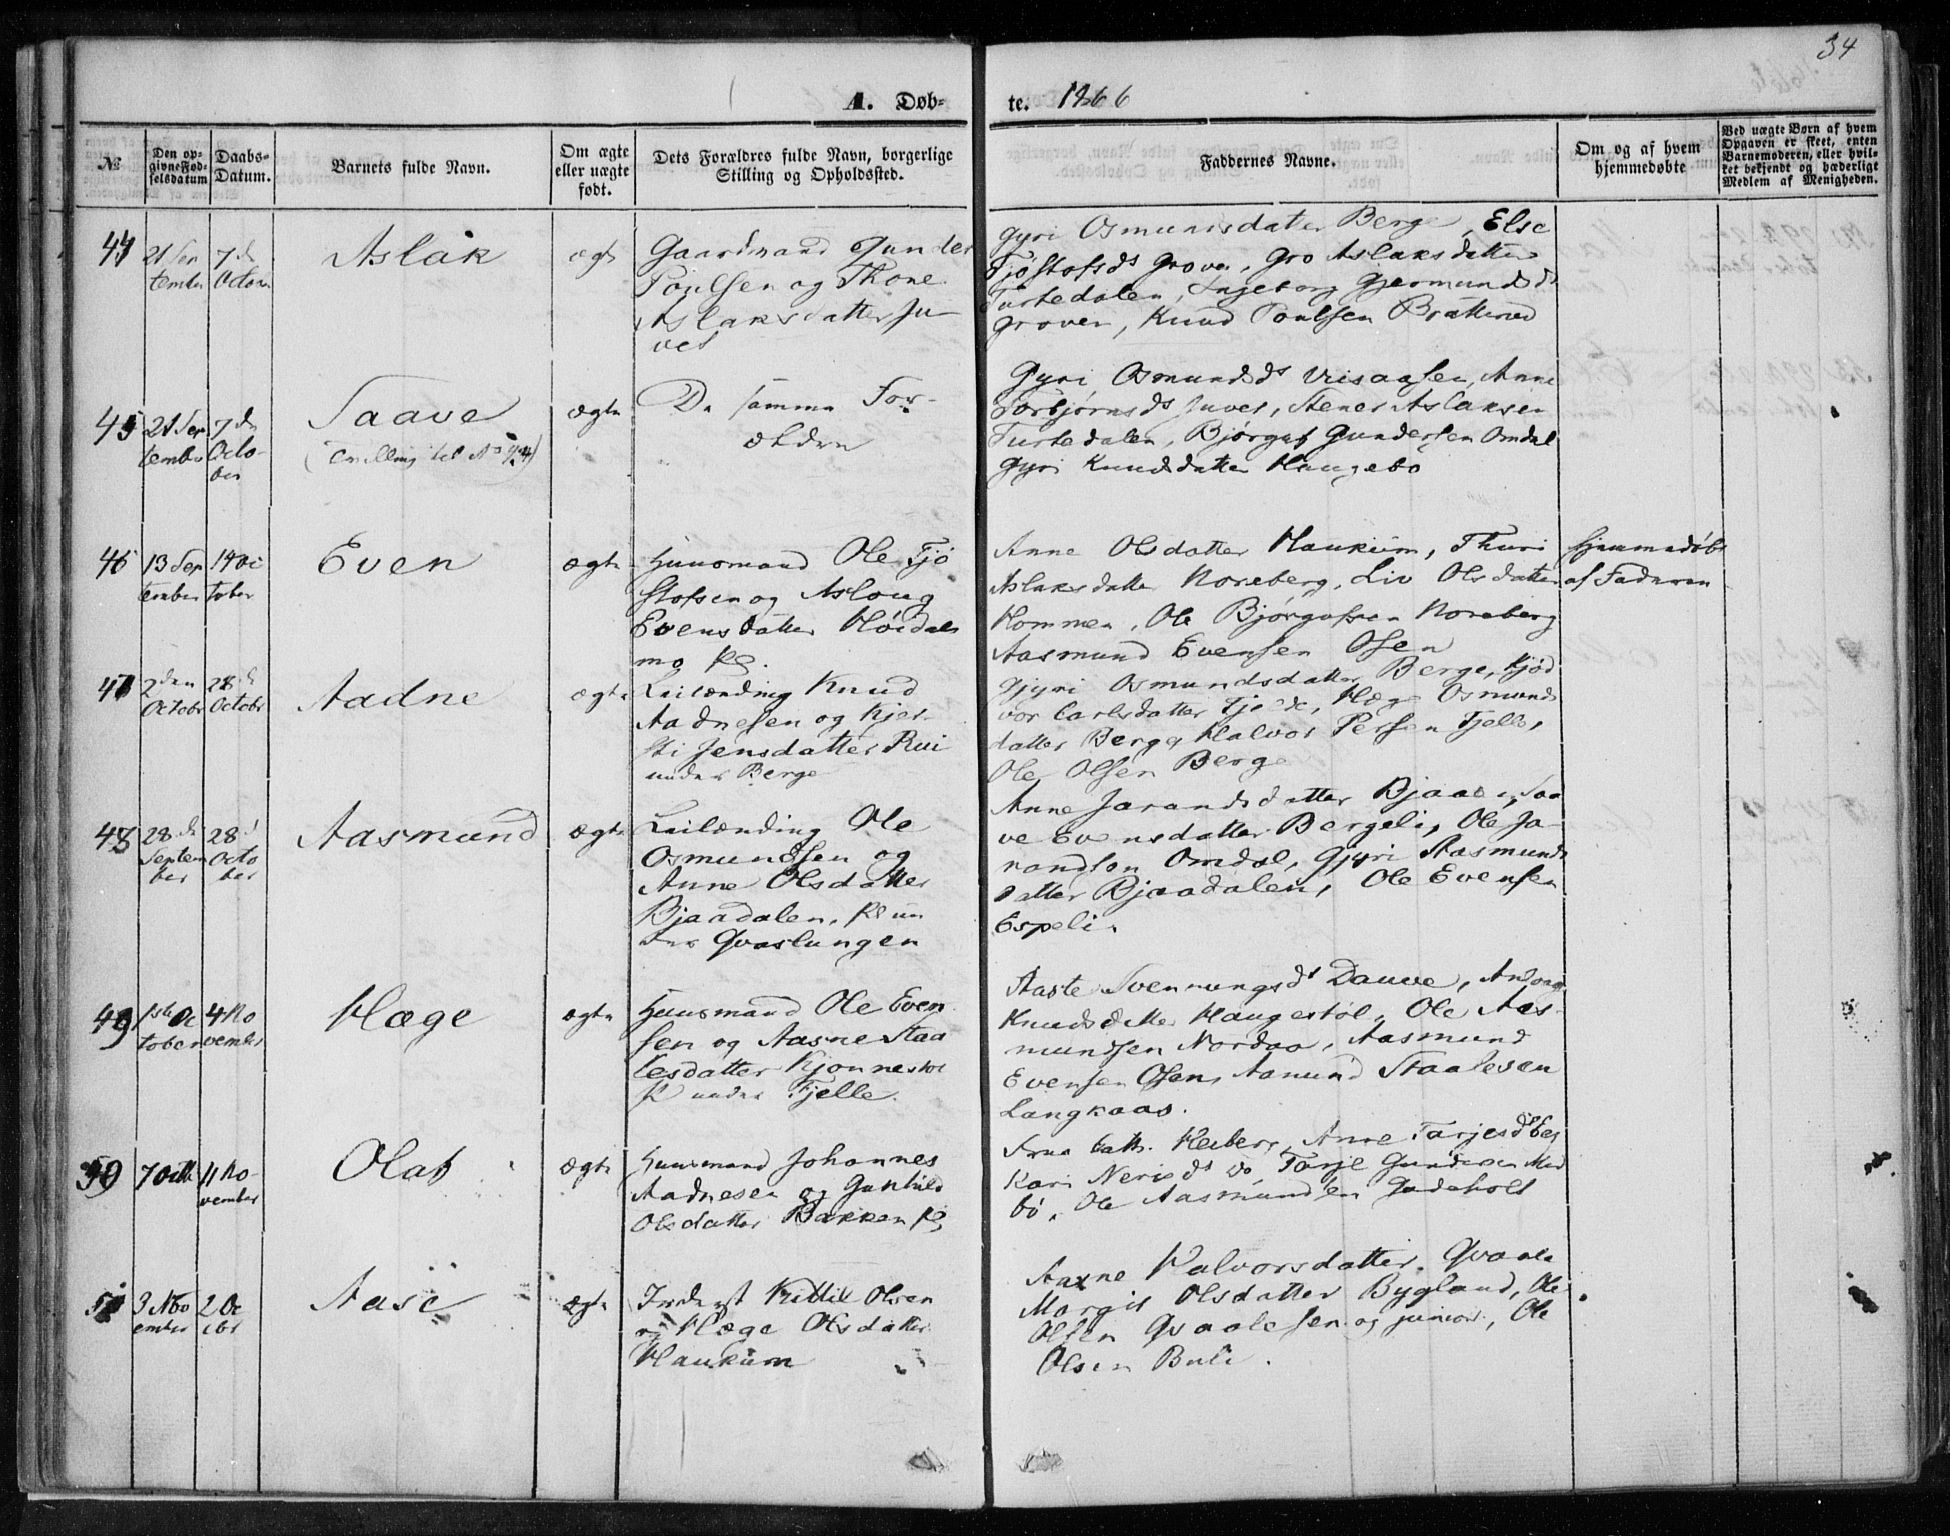 34
A. Døb-
te. 1866
№
Den op-
givne Fød-
selsdatum
Daabs-
Datum.
Barnets fulde Navn.
Om ægte
eller uægte
født.
Dets Forældres fulde Navn, borgerlige
Stilling og Opholdssted.
Faddernes Navne.
Om og af hvem
hjemmedøbte
Ved uægte Børn af hvem
Opgaven er skeet, enten
Barnemoderen, eller hvil-
ket bekjendt og hæderligt
Medlem af Menigheden.
44
21 Sep
tember
7de
October
Aslak
ægte
Gaardmand Gunder
Poulsen og Thone
Aslaksdatter Ju-
vet
Gyri Osmundsdatter Berge, Else
Fjostofsdr Groven, Gro Aslaksdatter
Turtedalen, Ingeborg Gjermundsdr
Groven, Knud Poulsen Bråtterud
45
21 Sep
tember
7de
Octo-
ber
Saave
(Tvilling til No 44)
ægte
De samme For-
ældre
Gyri Osmundsdr Vrisaasen, Anne
Torbjørnsdr Juvet, Stener Aslaksen
Turtedalen, Bjørguf Gundersen Omdal
Gyri Knudsdatter Haugebo
46
13 Sep
tember
14 Oc
tober
Even
ægte
Huusmand Ole Fjø
stofsen og Aslaug
Evensdatter Høidals
mo Pl.
Anne Olsdatter Haukum, Thuri
Aslaksdatter Noreberg, Liv Olsdatter
Hommen, Ole Bjørgufsen Noreberg
Aasmund Evensen Osen
hjemmedøbt
af Faderen
47
2den
Octobr
28de
Octobr
Aadne
ægte
Leilænding Knud
Aadnesen og Kjer-
sti Jensdatter Rui
under Berge
Gjyri Osmundsdatter Berge, Kjød
vor Carlsdatter, Hæge Osmunds
datter Berge, Halvor Persen Fjelle,
Ole Olsen Berge
48
28de
Septem
ber
28d
Octo
ber
Aasmund
ægte
Leilænding Ole
Osmundsen og
Anne Olsdatter
Bjaadalen, Pl un
der Qvaslungen
Anne Jarandsdatter Bjaaen, Saa
ve Evensdatter Bergeli, Ole Ja-
randson Omdal, Gjyri Aasmunds
datter Bjaadalen, Ole Evensen
Espeli.
49
1ste Oc
tober
4 No
vember
Hæge
ægte
Huusmand Ole Even
sen og Aasne Staa
lesdatter
Pl under Fjelle.
Aaste Svennungsdr Dauve,
Knudsdatter Haugestøl, Ole Aas-
mundsen Nordaa, Aasmund
Evensen Osen, Aanund Staalesen
Langkaas.
50
7 Octb
11 No-
vember
Olaf
ægte
Huusmand Johannes
Aadnesen og Gunhild
Olsdatter Bakken Pl,
Frue Cath. Heiberg, Anne Tarjesdr
Kari Nerisdr Do, Tarje Gundersen
bø, Ole Aasmundsen Gadeholt
51
3 Nov
ember
2 De
cbr
Aase
ægte
Inderst Kittil Olsen
og Hæge Olsdatter
Haukum
Aasne Halvorsdatter Qvaale
Margit Olsdatter Bygland, Ole
Olsen Qvaale sen og junior, Ole
Olsen Buli.